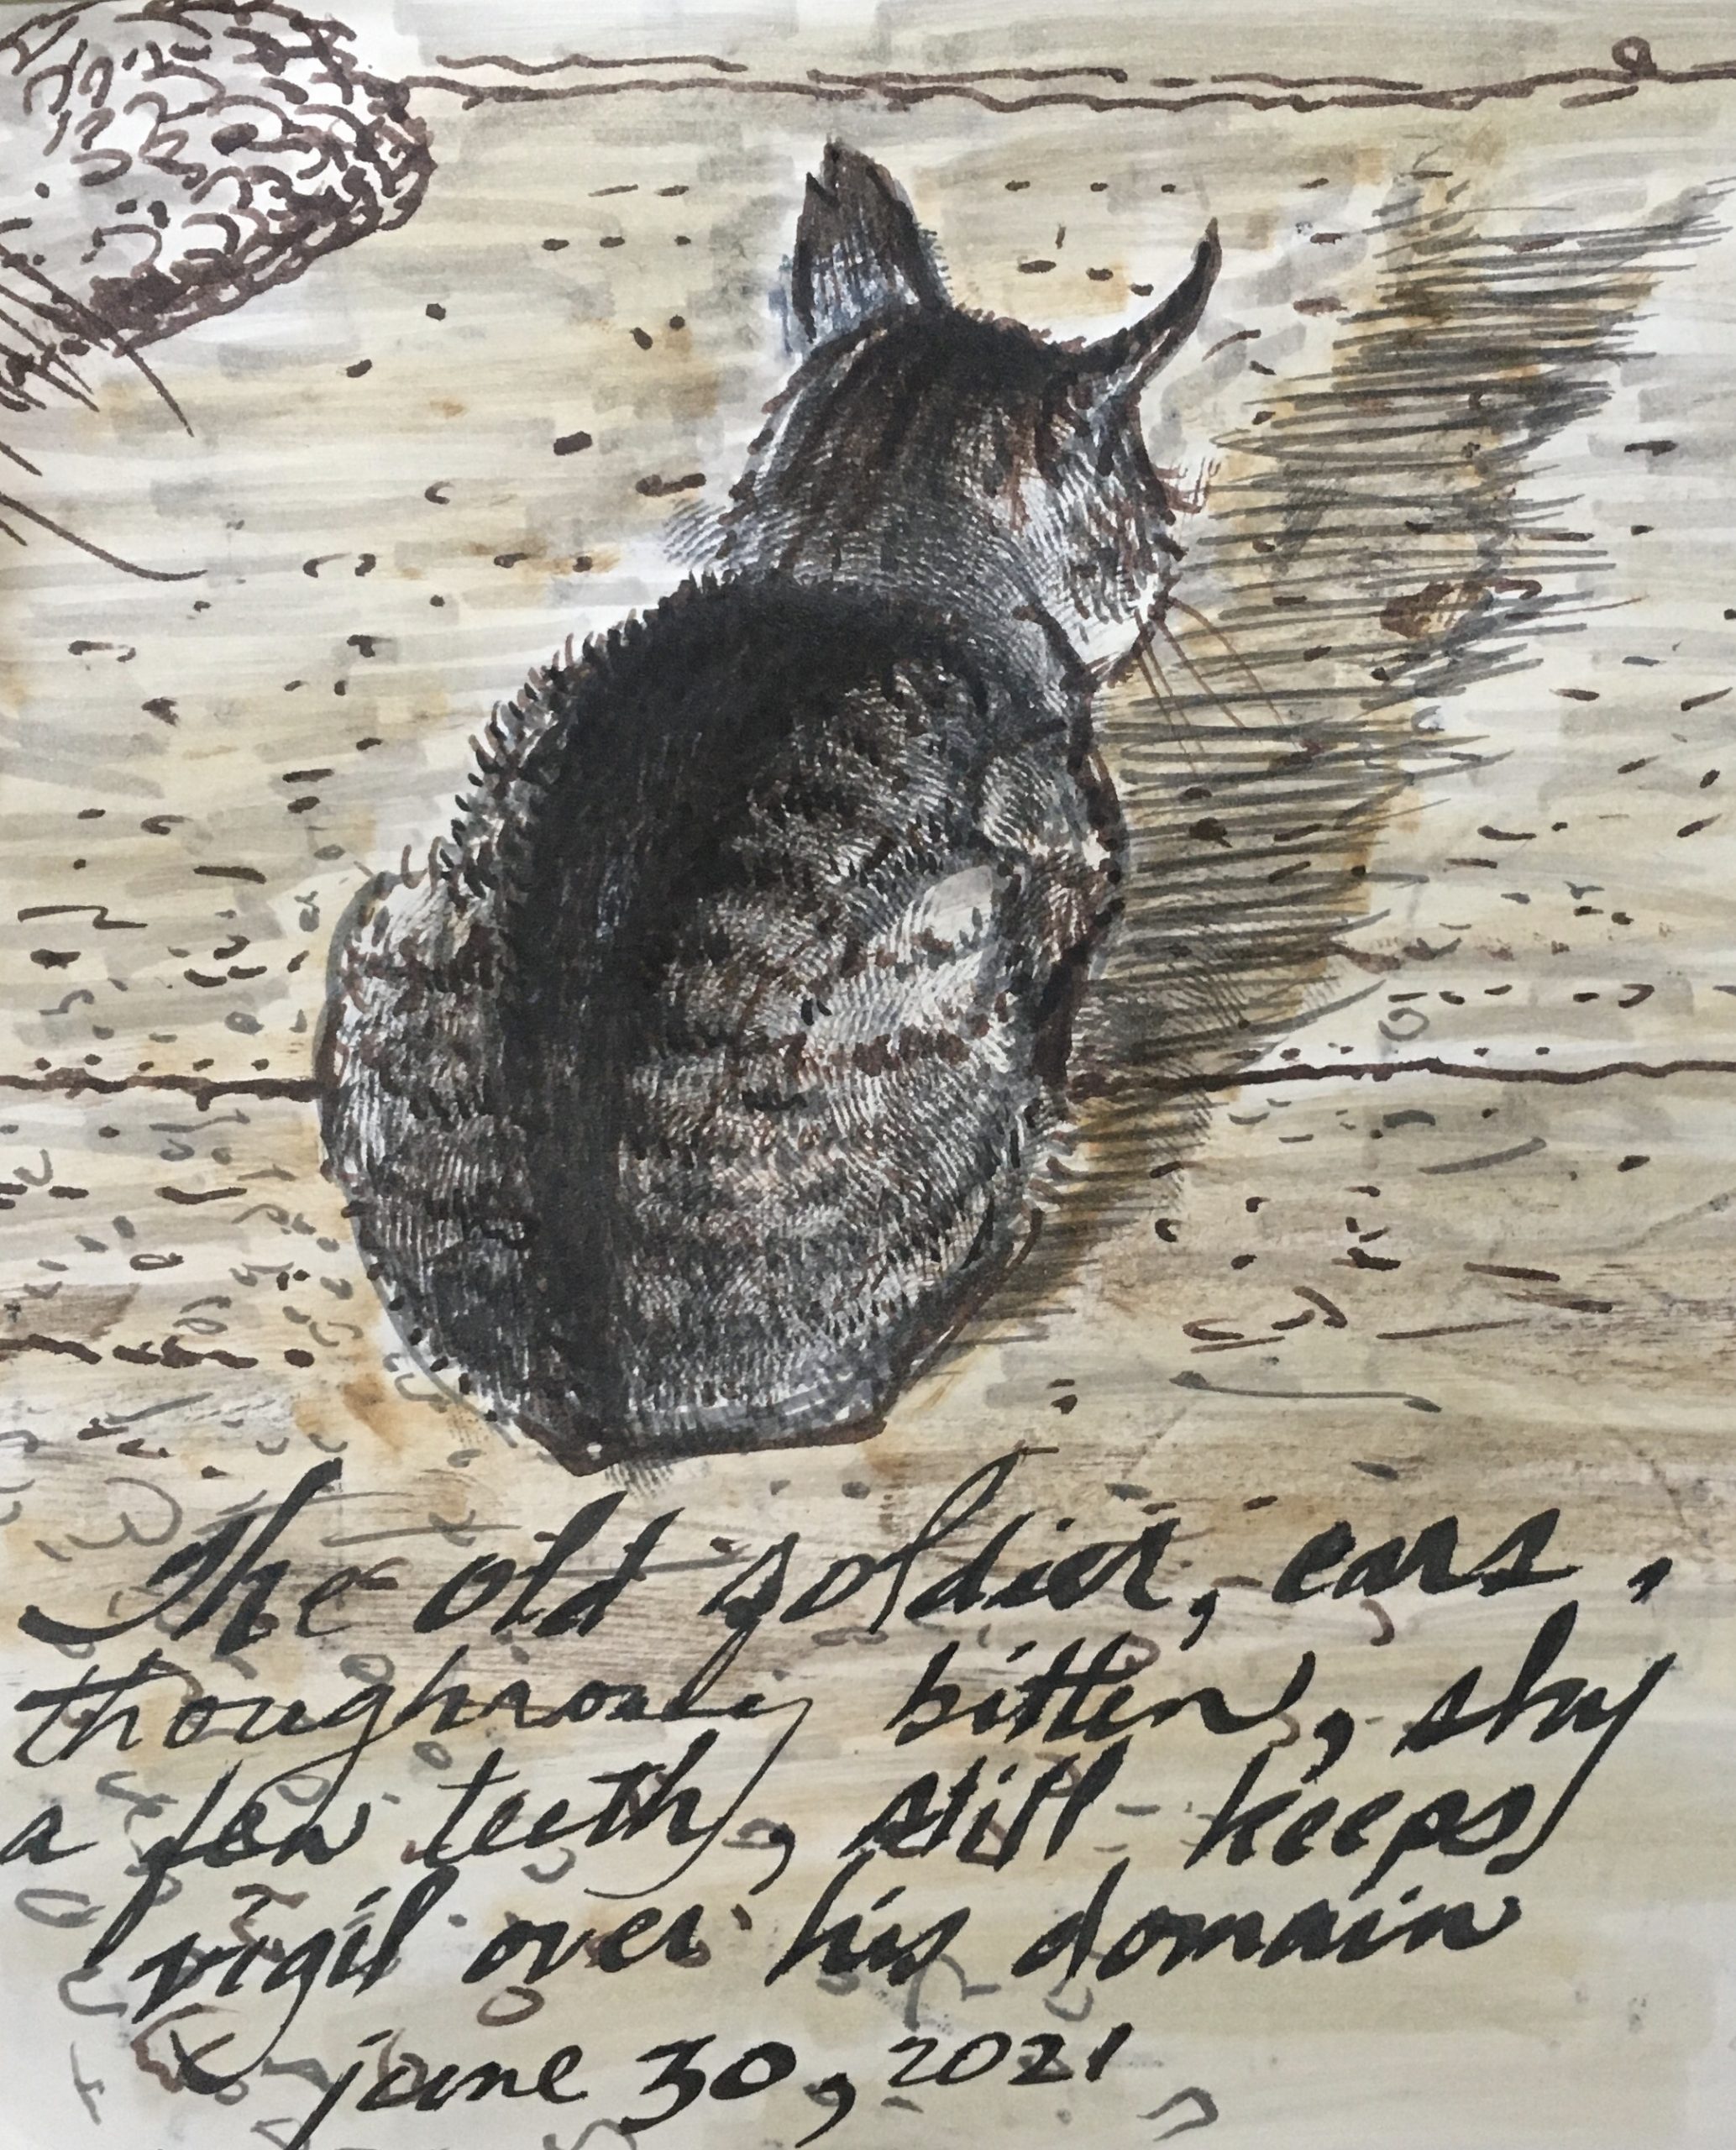 The old soldier, ears,
thoughrouly bitten, shy
a few teeth, still keeps
vigil over his domain
june 30, 2021